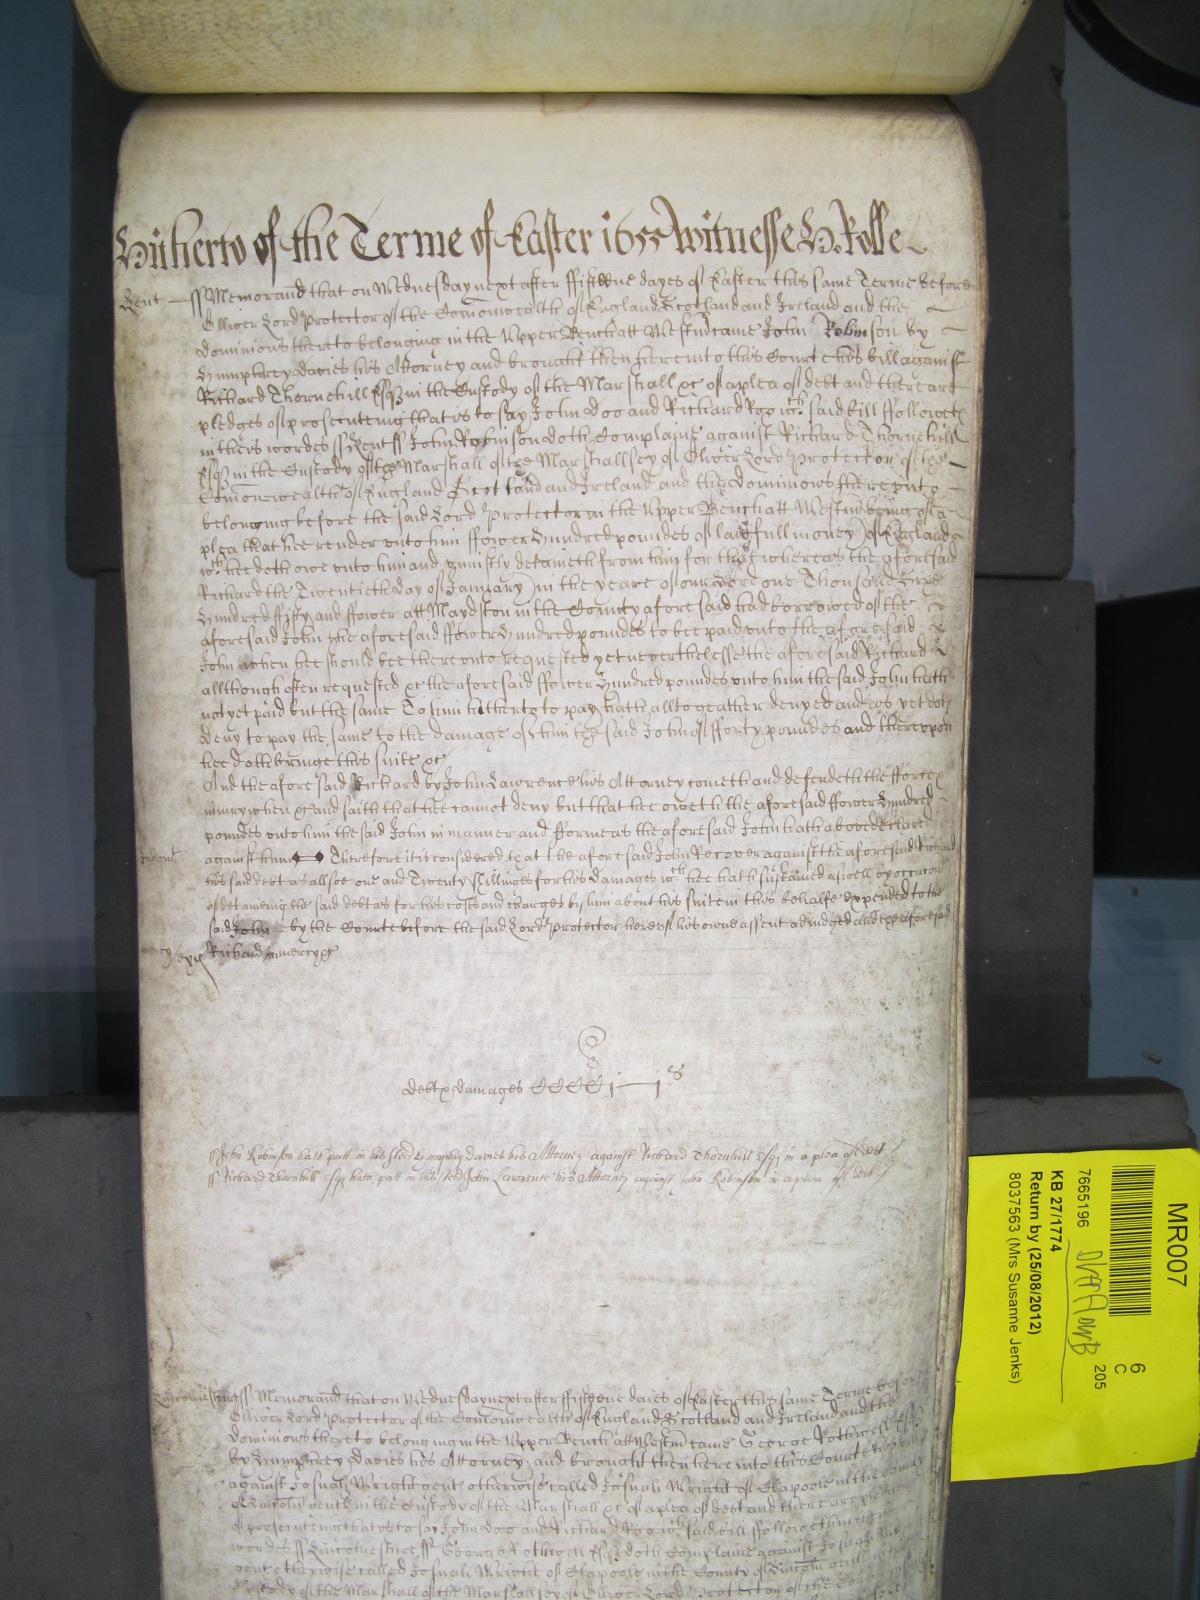 Hitherto of the Terme of Easter 1655 Witnesse H. Rolle
Kent ss Memorand that on Wednesday next after ffifteene dayes of Easter this same Terme before
Oliver Lord Protector of the Comonwealth of England Scotland and Ireland and the
dominions thereto belonging in the Upper Bench att Westm came John Robinson by
Humphrey Davies his Attorney and brought then here into this Courte his bill against
Richard Thornehill Esqz in the Custody of the Marshall &c of a plea of debt and there are
pledges of prosecuteing that is to say John Doo and Richard Roo wch said bill followeth
in theis wordes ss Kent ss John Robinson doth Complaine against Richard Thornehill
Esqz in the Custody of the Marshall of the Marshallsey of Oliver Lord Protector of the
Comonwealth of England Scotland and Ireland and the dominions thereunto
belonging before the said Lord Protector in the Upper Bench att Westm being of a
plea that hee render unto him ffower Hundred poundes of lawfull money of England
wch hee doth owe unto him and unjustly deteineth from him for that whereas the aforesaid
Richard the Twentieth day of January in the yeare of our Lord one Thousand Sixe
Hundred ffifty and ffower att Maydston in the County aforesaid had borrowed of the
aforesaid John the aforesaid ffower Hundred poundes to bee paid unto the aforesaid
John when hee should bee thereunto requested yet neverthelesse the aforesaid Richard
allthough often requested &c the aforesaid ffower Hundred poundes unto him the said John hath
not yet paid but the same To him hitherto to pay hath alltogeather denyed and as yet doth
deny to pay the same to the damage of him the said John of fforty poundes and thereupon
hee doth bringe this suite &c
And the aforesaid Richard by John Lawrence his Attorney cometh and defendeth the fforce &
injury when &c and saith that hee cannot deny but that hee oweth the aforesaid ffower Hundred
poundes unto him the said John in manner and fforme as the aforesaid John hath above declared
Judgmt against him Therefore it is considered that the aforesaid John Recover against the aforesaid Richard
his said debt as allsoe one and Twenty shillinges for his damages wch hee hath susteined aswell by occacon
of deteineing the said debt as for his costs and charges by him about his suite in this behalfe expended to the
said John by the Courte before the said Lord Protector here of his owne assent adiudged and the aforesaid
mercy Richard in mercy &c
debt & damages CCCCj js
ss John Robinson hath putt in his stead Humphry Davies his Attorney against Richard Thornhill Esqz in a plea of debt
ss Richard Thornhill Esqz hath putt in his stead John Lawrence his Attorney against John Robinson in a plea of debt
Lincolneshire ss Memorand that on Wednesday next after ffifteene daies of Easter this same Terme before
Oliver Lord Protector of the Comonwealth of England Scotland and Ireland and the
dominions thereto belonging in the Upper Bench att Westm came George Rothwell Esqz
by Humphrey Davies his Attorney and brought then here into this Courte his bill
against Josuah Wright gent otherwise called Josuah Wright of Clapoole in the County
of Lincoln gent in the Custody of the Marshall &c of a plea of debt and there are pledges
of prosecuteing that is to say John Doo and Richard Roo wch said bill followeth in theis
wordes ss Lincolneshire ss George Rothwell Esqz doth Complaine against Josuah Wright
gent otherwise called Josuah Wright of Clapoole in the County of Lincoln gent in the
Custody of the Marshall of the Marshallsey of Oliver Lord Protector of the
MR007
6
C
205
7665196
KB 27/1774
Return by (25/08/2012)
8037563 (Mrs Susanne Jenks)